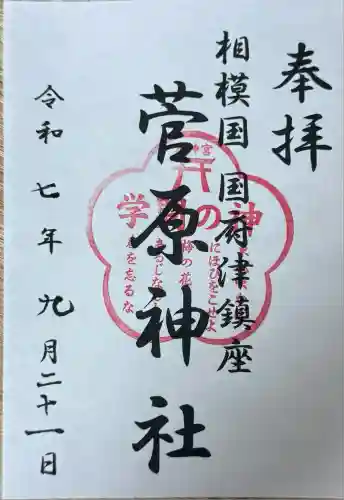 奉拝
相模国 国府津鎮座
菅原神社
令和七年九月二十一日
神の
学
にほひをこせよ
梅の花
を忘るな